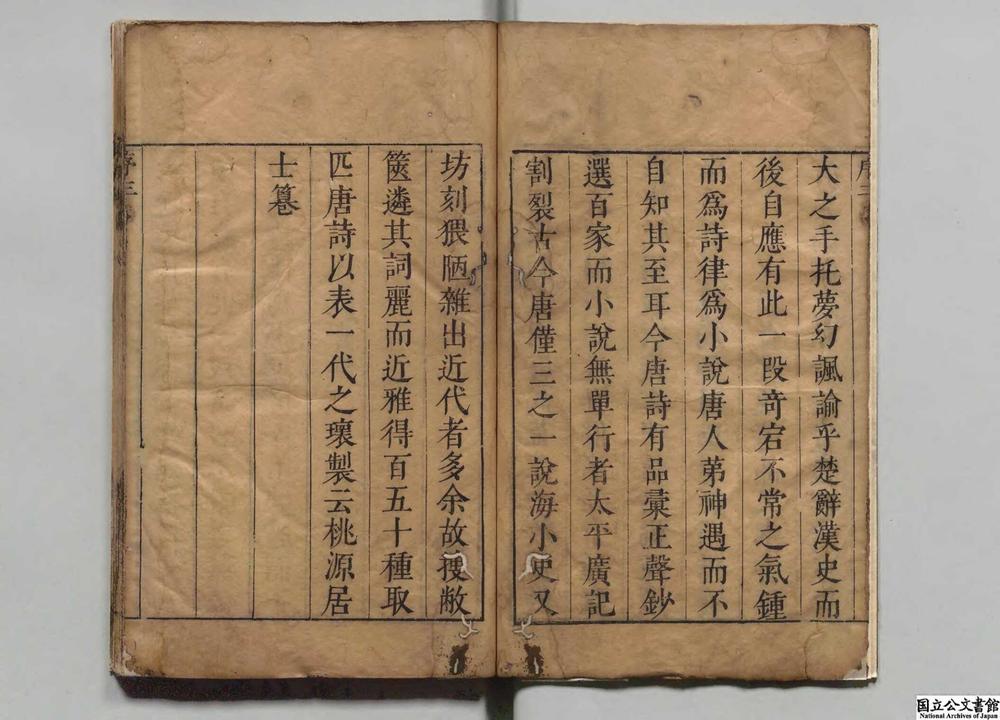 大之手托夢幻諷諭乎楚辭漢史而
後自應有此一段竒宕不常之氣鍾
而爲詩律爲小說唐人苐神遇而不
自知其至耳今唐詩有品彙正聲鈔
選百家而小說無單行者太平廣記
割裂古今唐僅三之一說海小史又
坊刻猥陋雜出近代者多余故捜敝
篋遴其詞麗而近雅得百五十種取
匹唐詩以表一代之瓌製云桃源居
士纂
序三
国立公文書館
National Archives of Japan